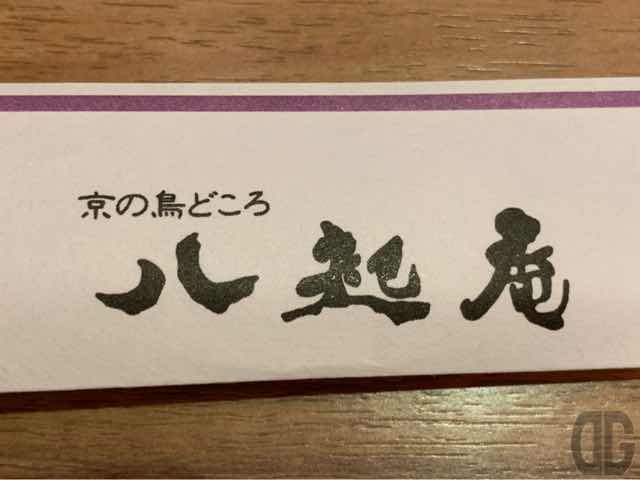 京の鳥どころ
八起庵
DG